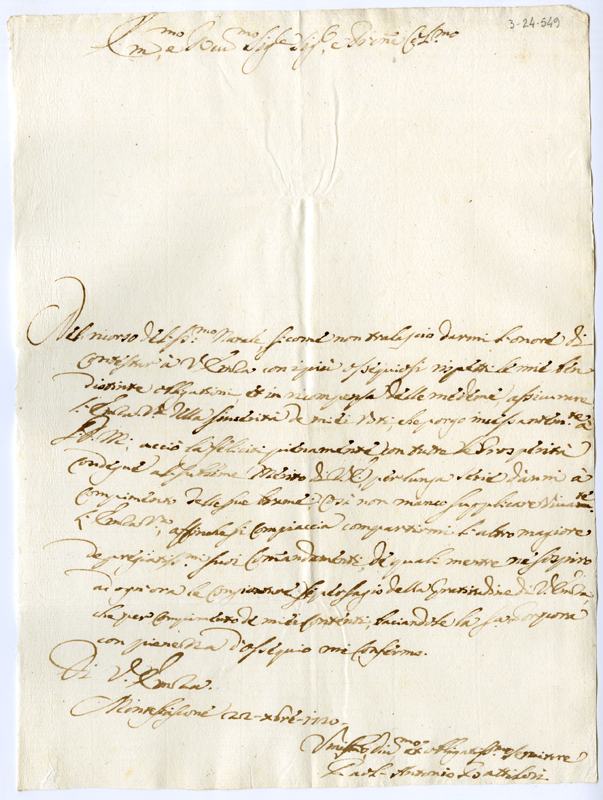 3-24-549
Em.mo e Reu.mo Sig.re Sig.r e Prone Col.mo
Nel ricorso del S.mo Natale, si come non tralascio darmi l'onore di
contestar à V. Emza con i piu ossequiosi rispetti le mie ben
distinte obligationi, et in ricompensa delle medeme assicurare
l'Emza V.ra della sincerità de miei Voti, che porgo
S. D. M. acciò la feliciti pienamente con tutte le Prosperità
condegne al sublime Merito di V. E. per lunga serie d'anni à
compimento delle sue brame; Così non manco supplicare
l'Emza V.ra, affinche si compiaccia compartirmi l'altro magiore
de pregiatiss.mi suoi Comandamenti, de quali mentre ne sospiro
ad ogni ora le congionture per saggio della Gratitudine di V. Emza,
che per compimento de miei Contenti, baciandole la Sac. Porpora
con pienezza d'ossequio mi confermo.
Di V. Emza.
Montefiascone 22 xbre 1720.
Umiliss.mo Diu.mo et Obligatiss.mo Seruitore
Paol. Antonio